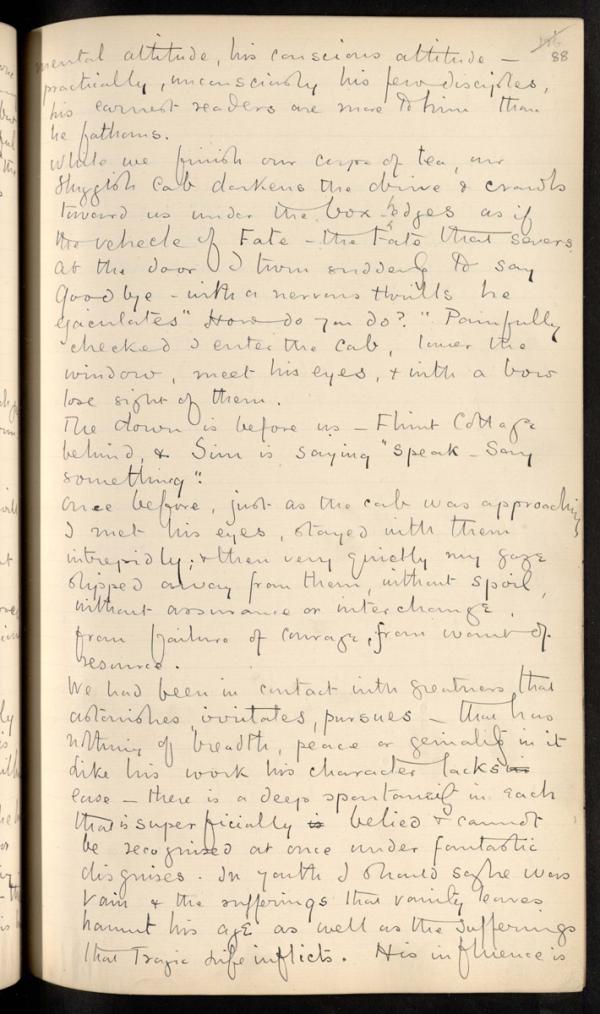 88
mental attitude, his conscious attitude —
practically, unconsciously his few disciples,
his earnest readers are more to him than
he fathoms.
While we finish our cups of tea, our
sluggish Cab darkens the drive & crawls
toward us under the box-edges as if
the vehicle of Fate – the Fate that severs
At the door I turn suddenly to say
Good bye – with a nervous thrill he
ejaculates "How do you do?" Painfully
checked I enter the Cab, lower the
window, meet his eyes, & with a bow
lose sight of them.
The down is before us – Flint Cottage
behind, & Sim is saying "Speak – Say
something".
Once before, just as the cab was approaching
I met his eyes, stayed with them
intrepidly; & then very quietly my gaze
slipped away from them, without spoil,
without assurance or interchange,
from failure of courage, from want of
resource.
We had been in contact with greatness that
astonishes, irritates, pursues – that has
nothing of breadth, peace or geniality in it
Like his work his character lacks
ease – there is a deep spontaneity in each
that is superficially belied & cannot
be recognised at once under fantastic
disguises. In youth I should say he was
vain & the sufferings that vanity leaves
haunt his age as well as the sufferings
that Tragic Life inflicts. His influence is